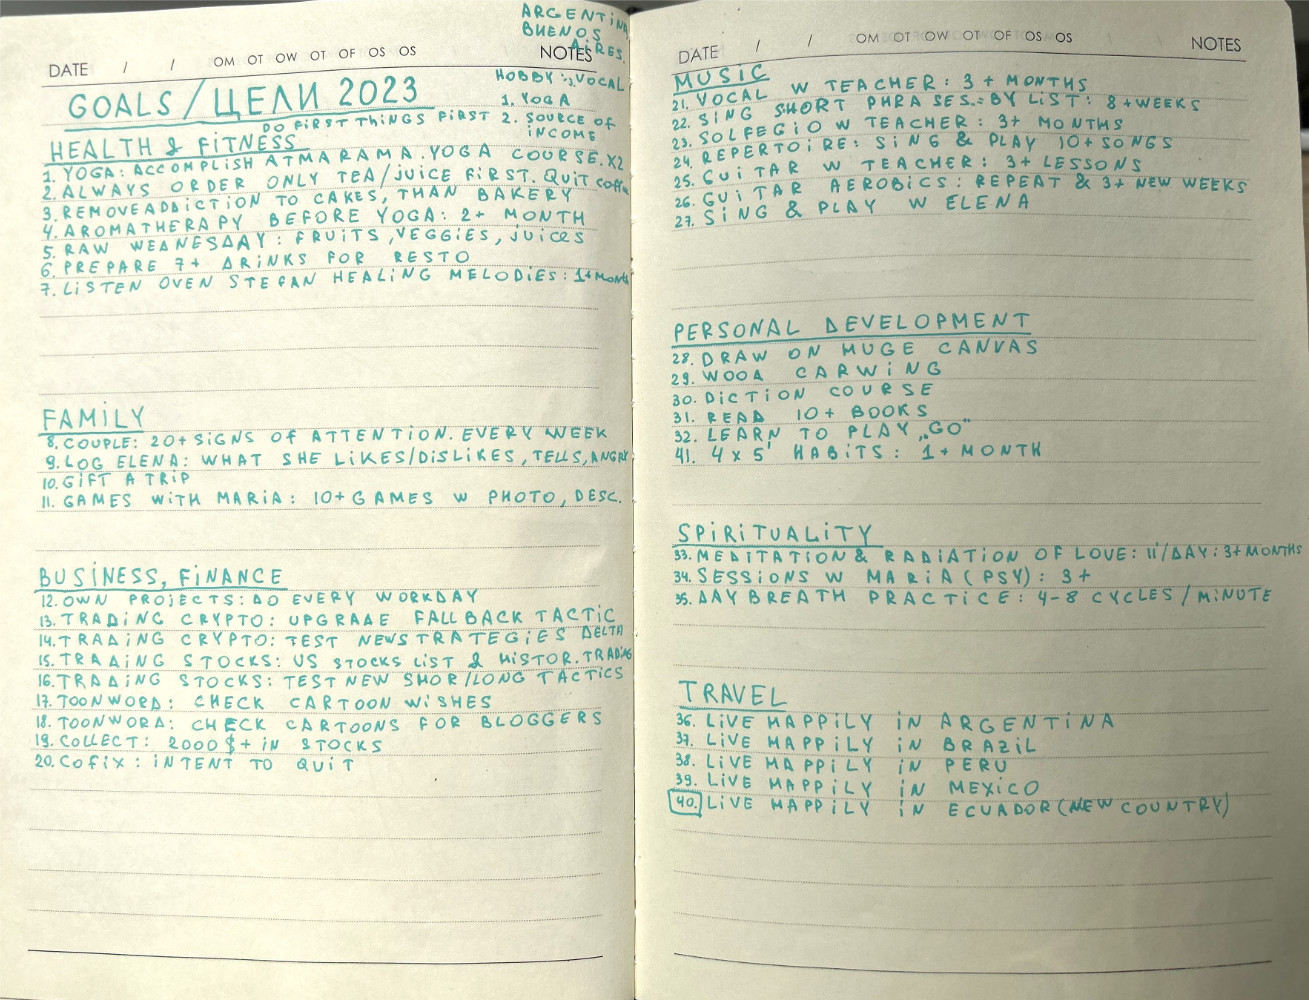 ARGENTINA,
BUENOS
AIRES.
DATE / / OM OT OW OT OF OS OS NOTES
HOBBY: VOCAL
GOALS/ЦЕЛИ 2023
1. YOGA
DO FIRST THINGS FIRST
2. SOURCE OF
INCOME
HEALTH & FITNESS
1. YOGA: ACCOMPLISH ATMARAMA.YOGA COURSE.X2
2. ALWAYS ORDER ONLY TEA/JUICE FIRST. QUIT COFFE
3. REMOVE ADDICTION TO CAKES, THAN BAKERY
4. AROMATHERAPY BEFORE YOGA: 2+ MONTH
5. RAW WEDNESDAY: FRUITS, VEGGIES, JUICES
6. PREPARE 7+ DRINKS FOR RESTO
7. LISTEN OVEN STEFAN HEALING MELODIES: 1+MONTH
FAMILY
8. COUPLE: 20+ SIGNS OF ATTENTION. EVERY WEEK
9. LOG ELENA: WHAT SHE LIKES/DISLIKES, TELLS, ANGRY
10. GIFT A TRIP
11. GAMES WITH MARIA: 10+ GAMES W PHOTO, DESC.
BUSINESS, FINANCE
12. OWN PROJECTS: DO EVERY WORKDAY
13. TRADING CRYPTO: UPGRADE FALLBACK TACTIC
14. TRADING CRYPTO: TEST NEW STRATEGIES DELTA
15. TRADING STOCKS: US STOCKS LIST & HISTOR. TRADING
16. TRADING STOCKS: TEST NEW SHOR/LONG TACTICS
17. TOONWORD: CHECK CARTOON WISHES
18. TOONWORD: CHECK CARTOONS FOR BLOGGERS
19. COLLECT: 2000$+ IN STOCKS
20. COFIX: INTENT TO QUIT
DATE / / OM OT OW OT OF OS OS NOTES
MUSIC
21. VOCAL W TEACHER: 3+ MONTHS
22. SING SHORT PHRASES: BY LIST: 8+WEEKS
23. SOLFEGIO W TEACHER: 3+ MONTHS
24. REPERTOIRE: SING & PLAY 10+ SONGS
25. GUITAR W TEACHER: 3+ LESSONS
26. GUITAR AEROBICS: REPEAT & 3+ NEW WEEKS
27. SING & PLAY W ELENA
PERSONAL DEVELOPMENT
28. DRAW ON HUGE CANVAS
29. WOOD CARWING
30. DICTION COURSE
31. READ 10+ BOOKS
32. LEARN TO PLAY „GO"
41. 4 x 5' HABITS: 1+ MONTH
SPIRITUALITY
33. MEDITATION & RADIATION OF LOVE: 11'/DAY: 3+MONTHS
34. SESSIONS W MARIA (PSY): 3+
35. DAY BREATH PRACTICE: 4-8 CYCLES/MINUTE
TRAVEL
36. LIVE HAPPILY IN ARGENTINA
37. LIVE HAPPILY IN BRAZIL
38. LIVE HAPPILY IN PERU
39. LIVE HAPPILY IN MEXICO
40. LIVE HAPPILY IN ECUADOR (NEW COUNTRY)